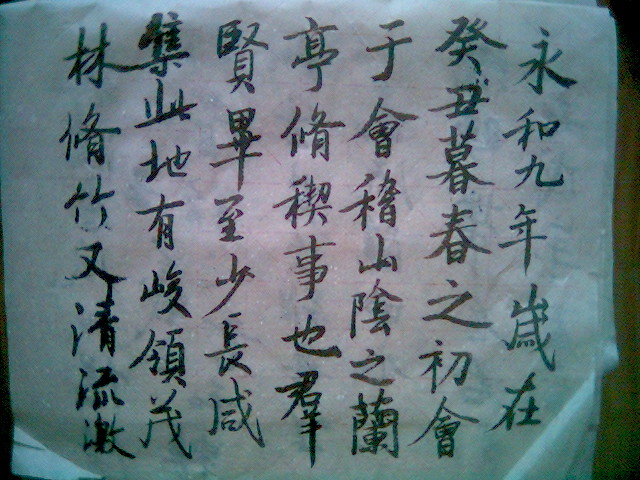 永和九年歲在
癸丑暮春之初會
于會稽山陰之蘭
亭脩稧事也羣
賢畢至少長咸
集此地有峻領茂
林脩竹又清流激